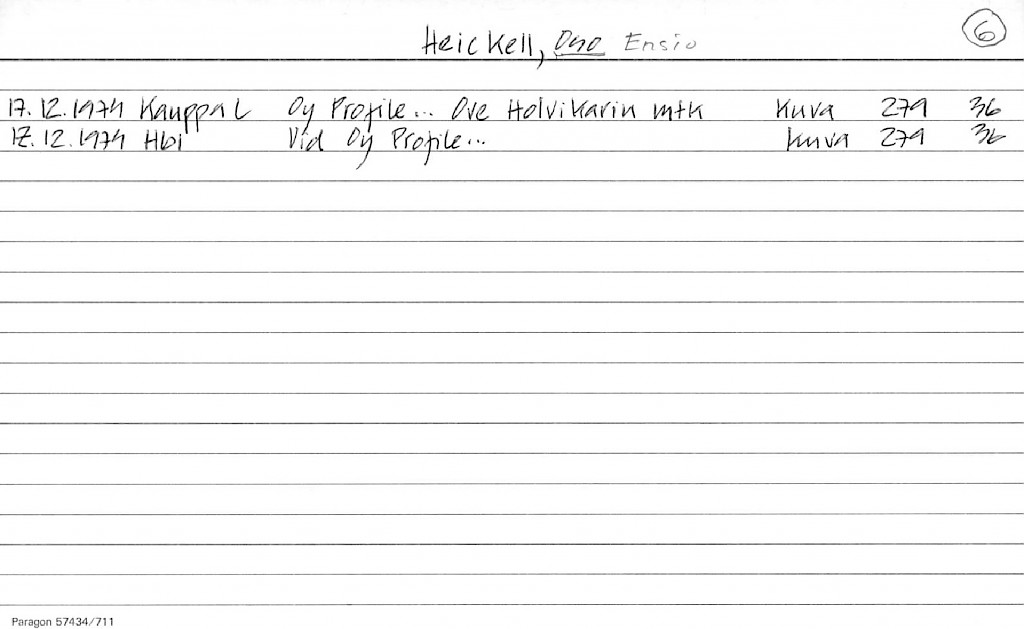 Heickell, Ono Ensio
6
17.12.1974 Kauppal Oy Profile... Ove Holvikarin mtk Kuva 279 36
17.12.1974 Hbl Vid Oy Profile... Kuva 279 36
Paragon 57434/711